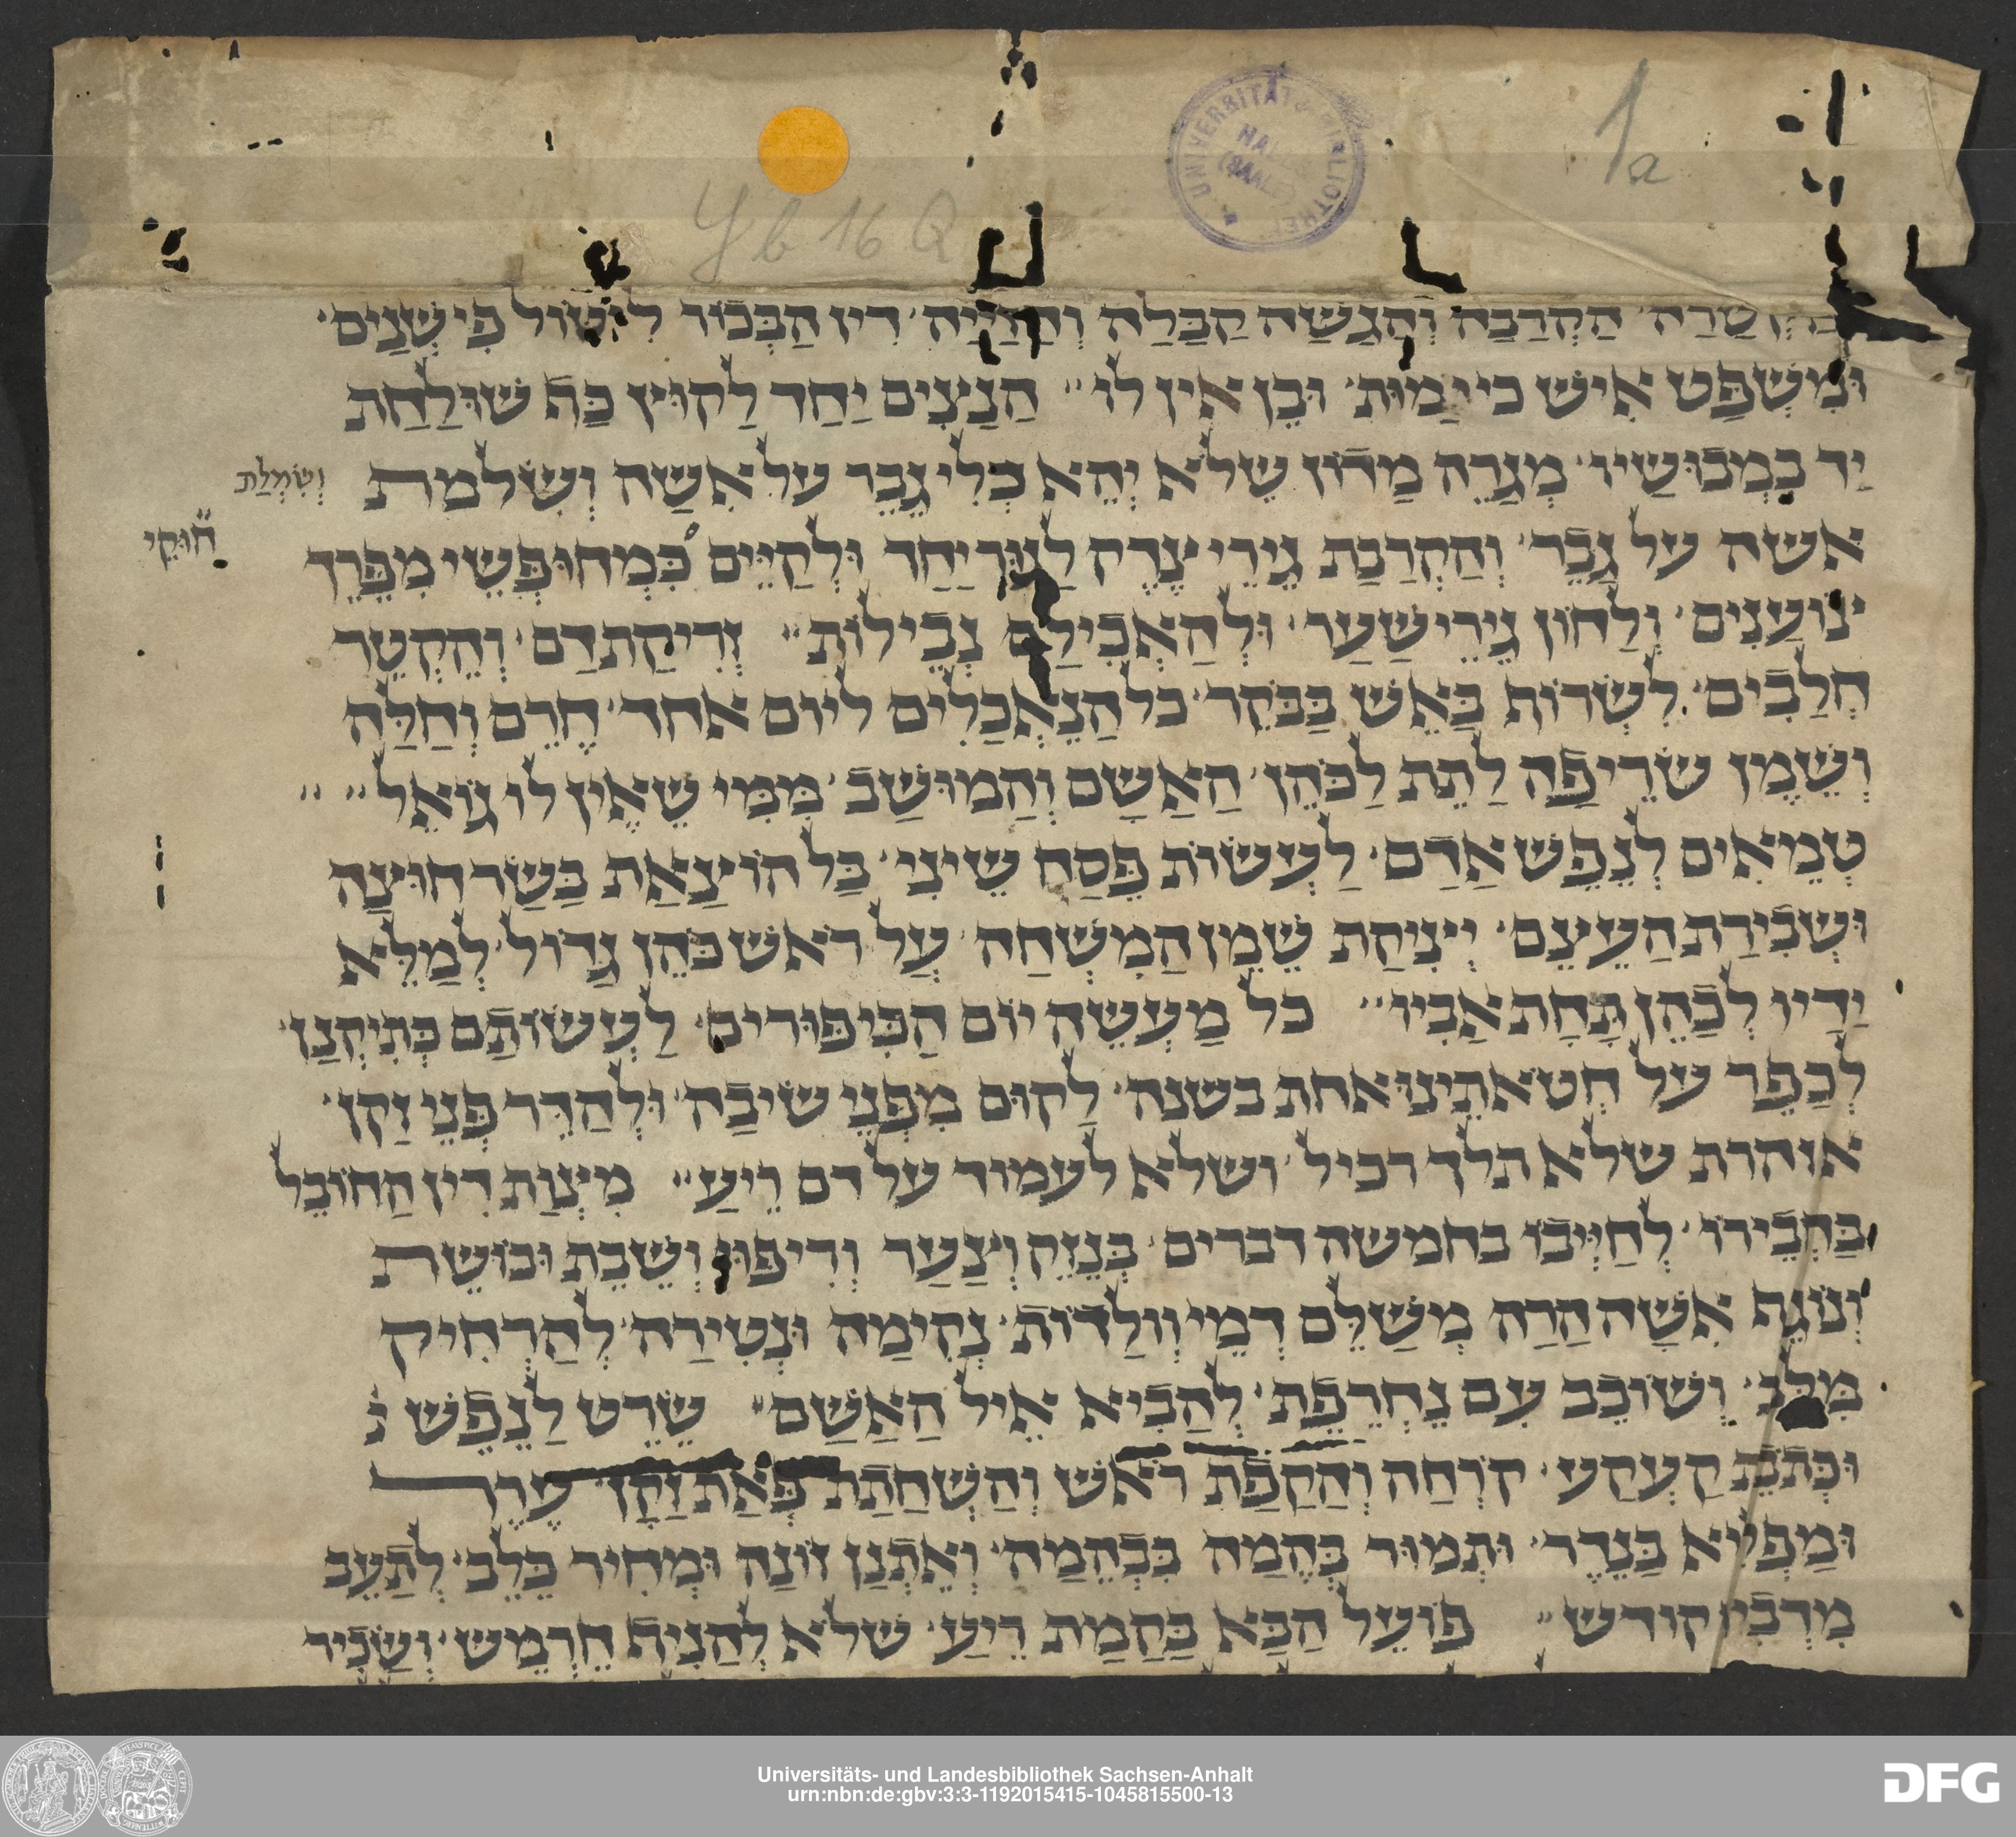 1a
Yb 16 Q
UNIVERSITÄTSBIBLIOTHEK HALLE (SAALE)
הַקְרָבָה וְהַגָּשָׁה קַבָּלָה דִין הַבְּכוֹר לִיטּוֹל פִּי שְׁנַיִם
וּמִשְׁפַּט אִישׁ כי יָמוּת וּבֵן אֵין לוֹ הַנִּצִּים יַחַד לָקוּץ כַּף שׁוּלַּחַת
יָד בִּמְבוּשָׁיו מְגָרֵה מָדוֹן שֶׁלֹּא יְהֵא כְלִי גֶבֶר על אִשָּׁה וְשִׂלמת
וְשִׂמְלַת
אשה על גֶּבֶר וְהַקְרָבַת גֵּירֵי צֶדֶק לָגוּר יַחַד וּלְקַיֵּים כִּמְחוּפְּשֵׂי מִפֶּרֶךְ
חוּקֵי
וְלָחוֹן גֵּירֵי שַׁעַר וּלְהַאֲכִילָם נְבֵילוֹת זְרִיקַת דַּם וְהֶקְטֵר
חֲלָבִים לִשְׂרוֹף בָּאֵשׁ בַּבֹּקֶר כל הַנֶּאֱכָלִים ליום אחד חֵרֶם וְחַלָּה
וְשֶׁמֶן שְׂרֵיפָה לָתֵת לַכֹּהֵן הָאָשָׁם וְהַמּוּשָׁב מִמִּי שֶׁאֵין לו גּוֹאֵל
טְמֵאִים לְנֶפֶשׁ אָדָם לַעְשׂוֹת פֶּסַח שֵׁינִי בַּל הוֹצָאַת בָּשָׂר חוּצָה
וּשְׁבִירַת הָעֶצֶם יְצִיקַת שֶׁמֶן הַמִּשְׁחָה עַל רֹאשׁ כֹּהֵן גָּדוֹל לְמַלֵּא
יָדָיו לְכַהֵן תַּחַת אָבִיו כל מַעְשֵׂה יוֹם הַכִּיפּוּרִים לַעְשׂוֹתָם כְּתִיקְנָן
לְכַפֵּר עַל חַטֹּאתֵינוּ אחת בשנה לָקוּם מִפְּנֵי שֵׂיבָה וּלְהַדֵּר פְּנֵי זָקֵן
אזהרת שלא תלך רכיל ושלא לעמוד על דם רֵיעַ מִיצְוַת דִּין הַחוֹבֵל
בַּחֲבֵירוֹ לְחַיְּיבוֹ בחמשה דברים בְּנֵזֶק וְצַעַר וְרִיפּוּי וְשֶׁבֶת וּבוֹשֶׁת
וְנוֹגֵף אִשָּׁה הָרָה מְשַׁלֵּם דְּמֵי וְולָדוֹת נְקִימָה וּנְטִירָה לְהַרְחִיק
מִלֵּב וְשׁוֹכֵב עִם נֶחֱרֶפֶת לְהָבִיא אֵיל הָאָשָׁם שֶׂרֶט לַנֶּפֶשׁ
וּכְתֹבֶת קַעְקַע קָרְחָה וְהַקָּפַת רֹאשׁ וְהַשְׁחָתַת פְּאַת זָקָן עֵרֶךְ
וּמַפְלִיא בַּנֶּדֶר וּתְמוּר בְּהֵמָה בִּבְהֵמָה וְאֶתְנַן זוֹנָה וּמְחִיר כֶּלֶב לְתַעֵב
מִדְּבִיר קודש פּוֹעֵל הַבָּא בְּקָמַת רֵיעַ שלא לְהָנִיף חֶרְמֵשׁ וְשָׂכִיר
Universitäts- und Landesbibliothek Sachsen-Anhalt
urn:nbn:de:gbv:3:3-1192015415-1045815500-13
DFG